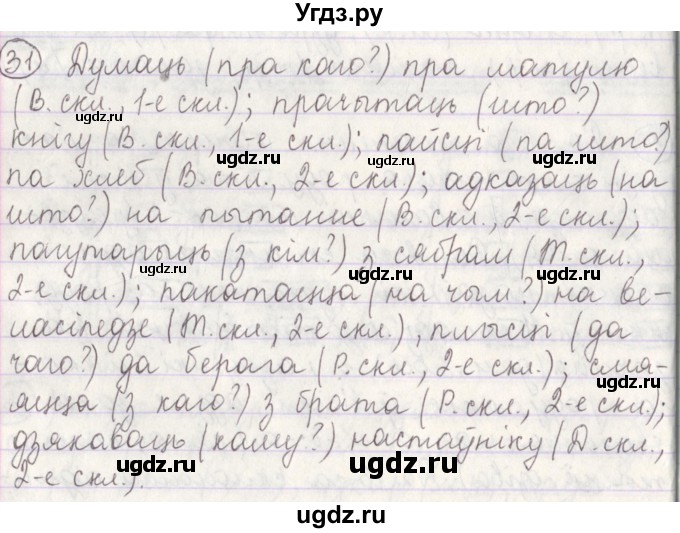 Угдз.ру
31 Думаць (пра каго?) пра матулю
(В. скл., 1-е скл.); прачытаць (што?)
кнігу (В. скл., 1-е скл.); пайсці (па што?)
па хлеб (В. скл., 2-е скл.); адказаць (на
што?) на пытанне (В. скл., 2-е скл.);
пагутарыць (з кім?) з сябрам (Т. скл.,
2-е скл.); пакатацца (на чым?) на ве-
ласіпедзе (М. скл., 2-е скл.), плысці (да
чаго?) да берага (Р. скл., 2-е скл.); смя-
яцца (з каго?) з брата (Р. скл., 2-е скл.);
дзякаваць (каму?) настаўніку (Д. скл.,
2-е скл.).
ugdz.ru
ugdz.ru
ugdz.ru
ugdz.ru
ugdz.ru
ugdz.ru
ugdz.ru
ugdz.ru
ugdz.ru
ugdz.ru
ugdz.ru
ugdz.ru
ugdz.ru
ugdz.ru